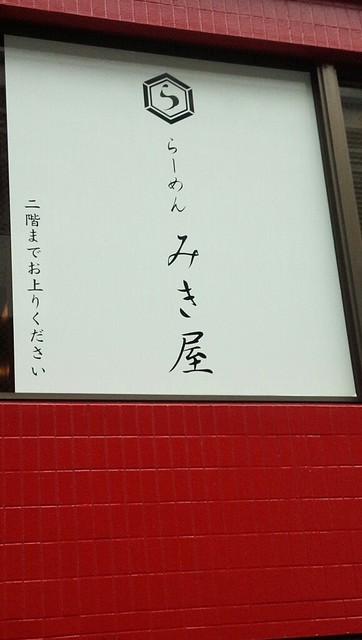 ら
らーめん
みき屋
二階までお上りください